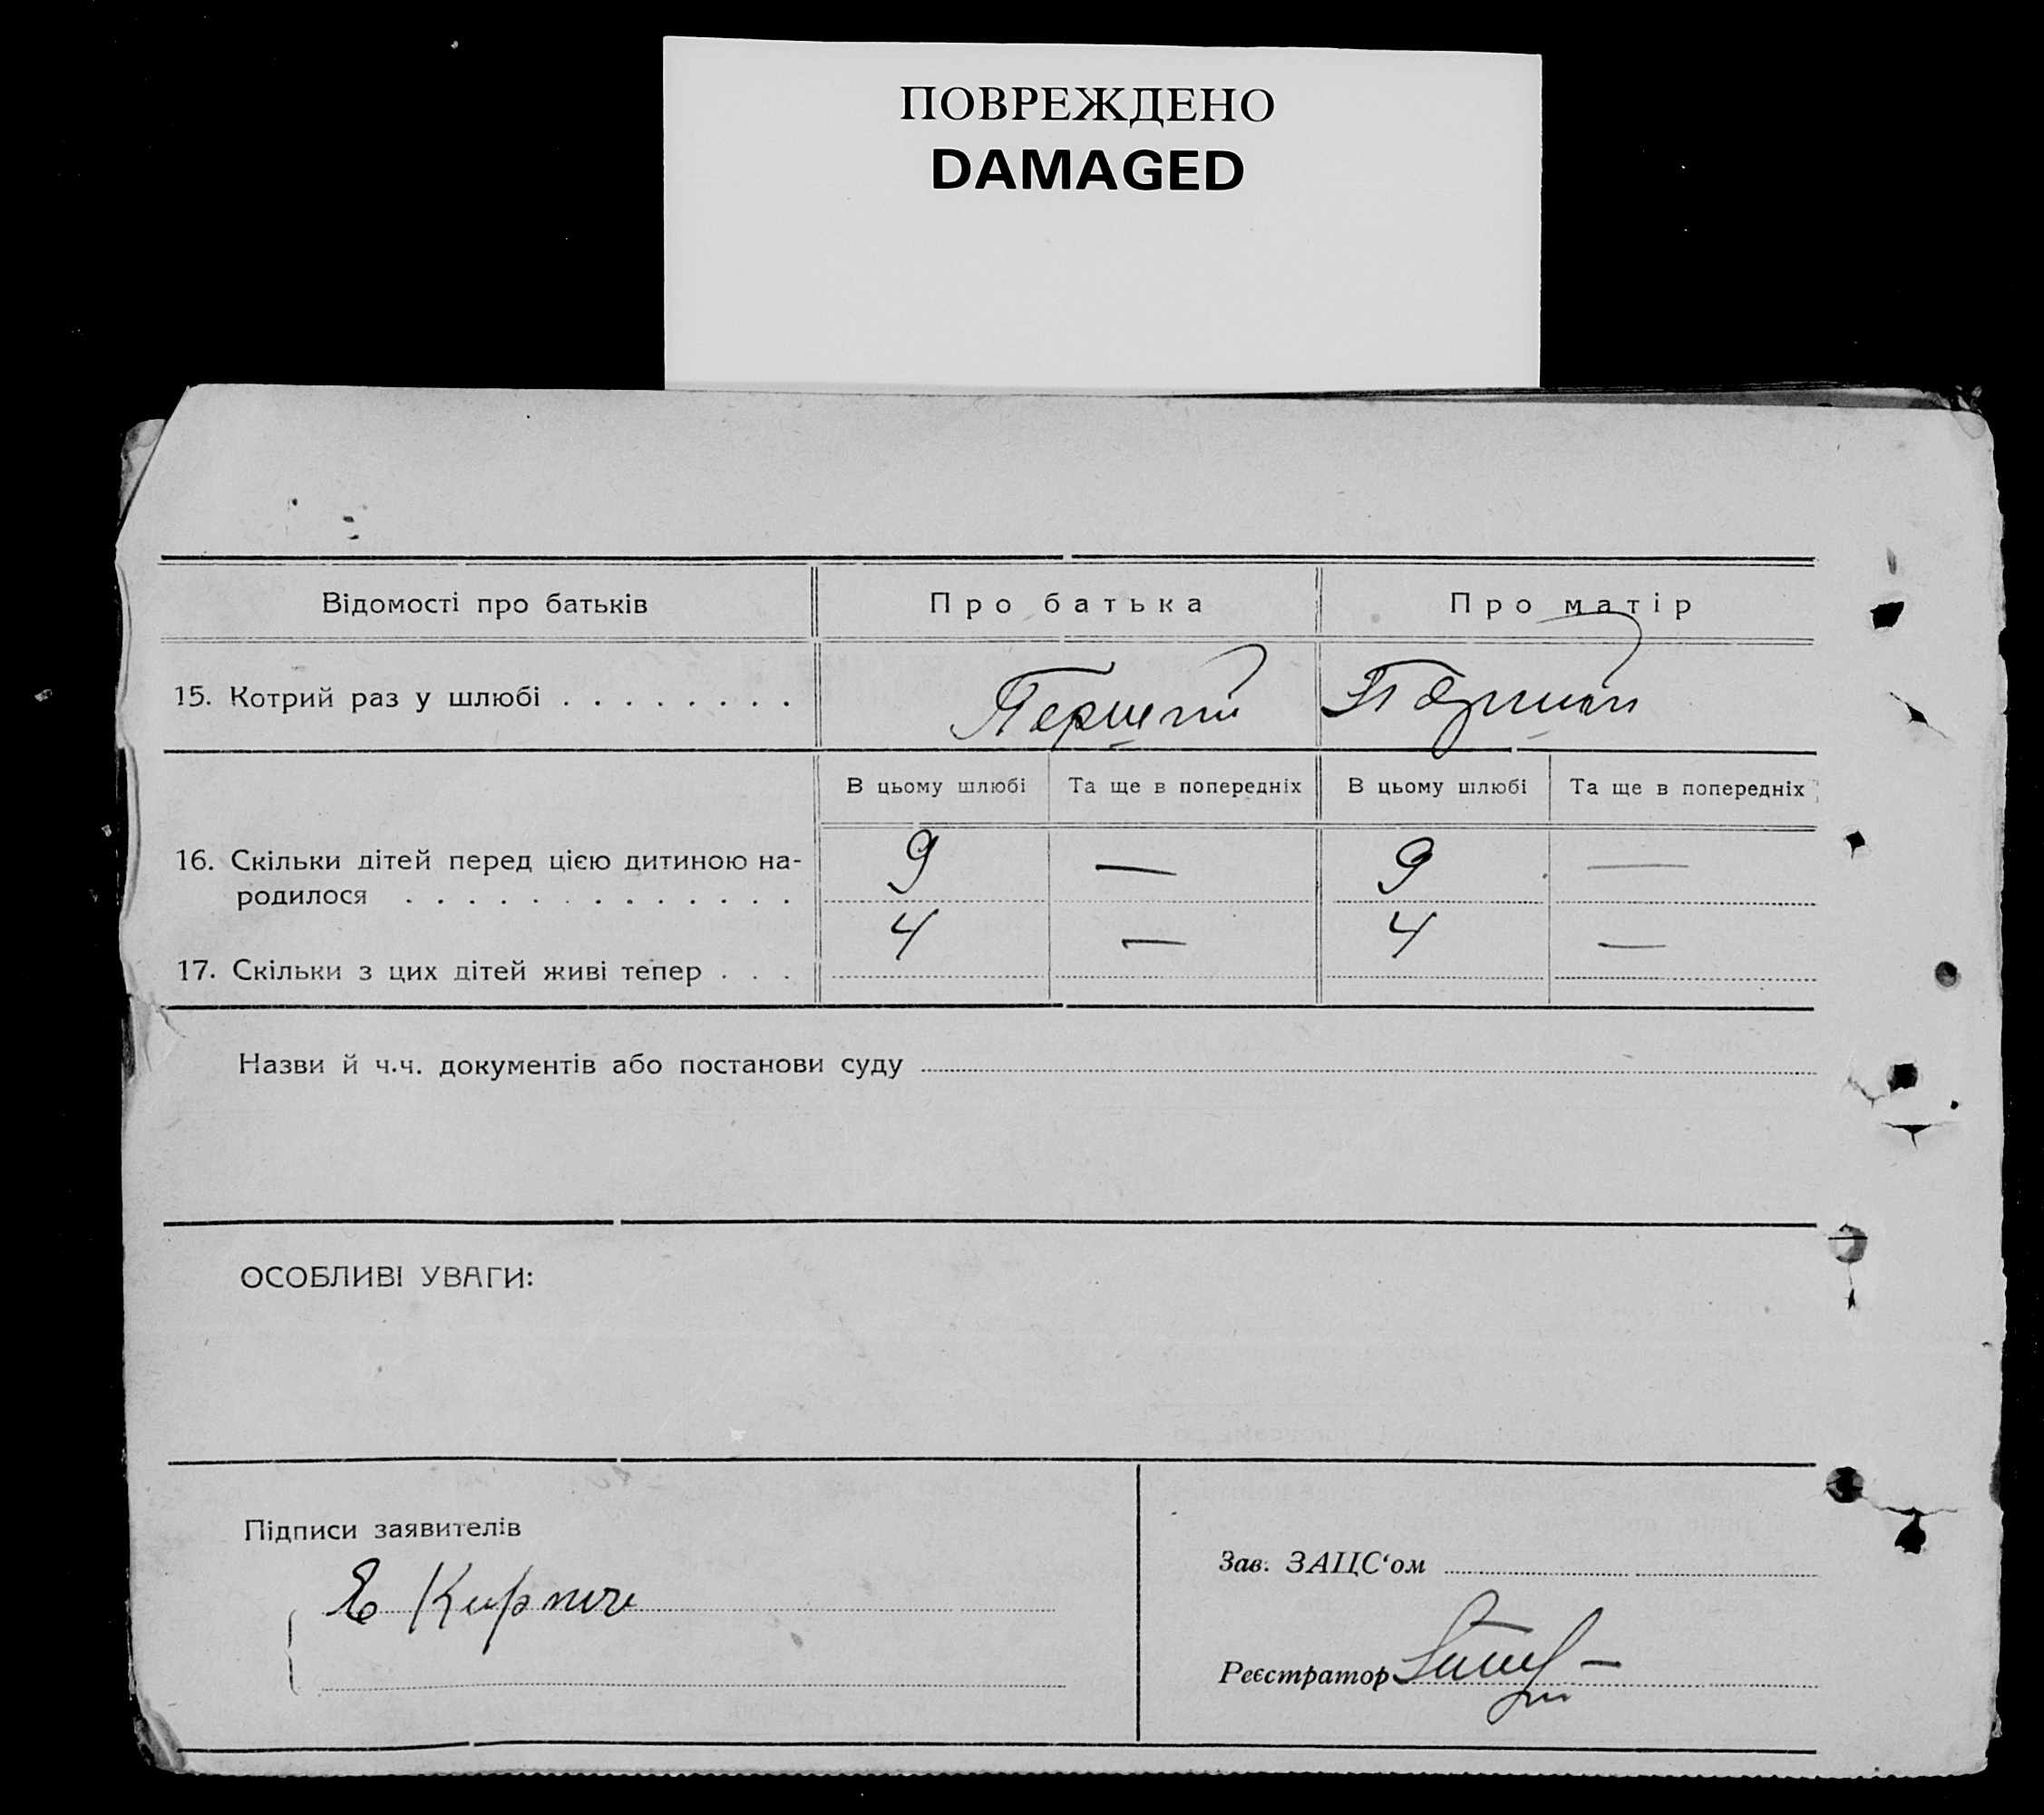 ПОВРЕЖДЕНО
DAMAGED
Відомості про батьків Про батька Про матір
15. Котрий раз у шлюбі . . . . . . . . Перший Перший
В цьому шлюбі Та ще в попередніх В цьому шлюбі Та ще в попередніх
16. Скільки дітей перед цією дитиною на- 9 — 9 —
родилося . . . . . . . . . . . . .
17. Скільки з цих дітей живі тепер . . . 4 — 4 —
Назви й ч.ч. документів або постанови суду
ОСОБЛИВІ УВАГИ:
Підписи заявителів
Зав. ЗАЦС‘ом
Е Кирпич
Реєстратор